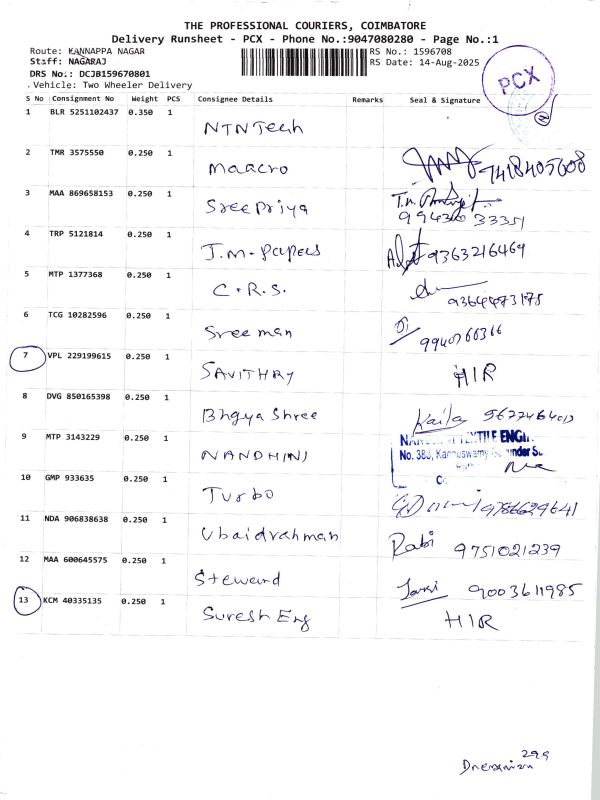 THE PROFESSIONAL COURIERS, COIMBATORE
Delivery Runsheet - PCX - Phone No.:9047080280 - Page No.:1
Route: KANNAPPA NAGAR RS No.: 1596708
Staff: NAGARAJ RS Date: 14-Aug-2025
DRS No.: DCJB159670801
Vehicle: Two Wheeler Delivery
PCX
S No Consignment No Weight PCS Consignee Details Remarks Seal & Signature
1 BLR 5251102437 0.350 1 NTN Tech
2 TMR 3575550 0.250 1 Maacro 7418405608
3 MAA 869658153 0.250 1 Sreepriya
4 TRP 5121814 0.250 1 J.M. Papers 9363216469
5 MTP 1377368 0.250 1 C.R.S. 9364473175
6 TCG 10282596 0.250 1 Sreeman
7 VPL 229199615 0.250 1 SAVITHRY HIR
8 DVG 850165398 0.250 1 Bhgya Shree Kaila
9 MTP 3143229 0.250 1 NANDHINI TEXTILE
No. 383,
10 GMP 933635 0.250 1 Turbo
11 NDA 906838638 0.250 1 Ubaidrahman Rabi 9751021239
12 MAA 600645575 0.250 1 Steward 9003611985
13 KCM 40335135 0.250 1 Suresh Eng HIR
299